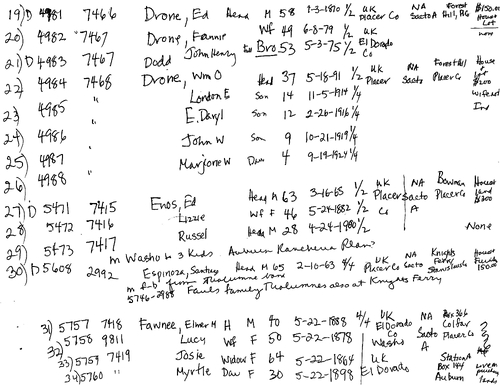 19) D 4981 7466 Drone, Ed Head M 58 9-3-1870 1/2 UK Placer Co NA Sacto Forest Hill, $150.00 House Lot
20) 4982 "7467 Drone, Fannie Wf 49 6-8-79 1/2 UK none
21) D 4983 7467 Dodd John Henry Bro 53 5-3-75 1/2 El Dorado Co
22) 4984 7468 Drone, Wm O Head 37 5-18-91 1/2 UK Placer NA Sacto Forest Hill Placer Co House + Lot $200
23) 4985 " London E Son 14 11-5-1914 1/4 Wife not Ind
E. Daryl Son 12 2-26-1916 1/4
24) 4986 " John W Son 9 10-21-1919 1/4
25) 4987 " Marjorie W Dau 4 9-19-1924 1/4
26) 4988 "
27) D 5471 7415 Enos, Ed Head M 63 3-16-65 1/2 UK Placer Co NA Sacto Bowman Placer House land $200
28) 5472 7416 Lizzie Wf F 46 5-24-1882 1/2 A
29) 5473 7417 Russel Head M 28 4-24-1900 1/2 None
m Washo w 3 kids. Auburn Rancheria Plan?
30) D 5608 2992 Espinoza, Santos Head M 65 2-10-63 4/4 UK Placer Co NA Sacto Knights Ferry Stanislaus House 150.00
5746-2988 Fauls family Tuolumnes also at Knights Ferry
31) 5757 7418 Fawnee, Elmer H H M 40 5-22-1888 4/4 UK El Dorado NA Sacto Box 366 Colfax Placer Co ?
32) 5758 9811 Lucy Wf F 50 5-22-1878 Washo A
33) 5759 7419 Josie Widow F 64 5-22-1864 UK Station A
34) 5760 " Myrtle Dau F 30 5-22-1898 El Dorado Box 144 Auburn